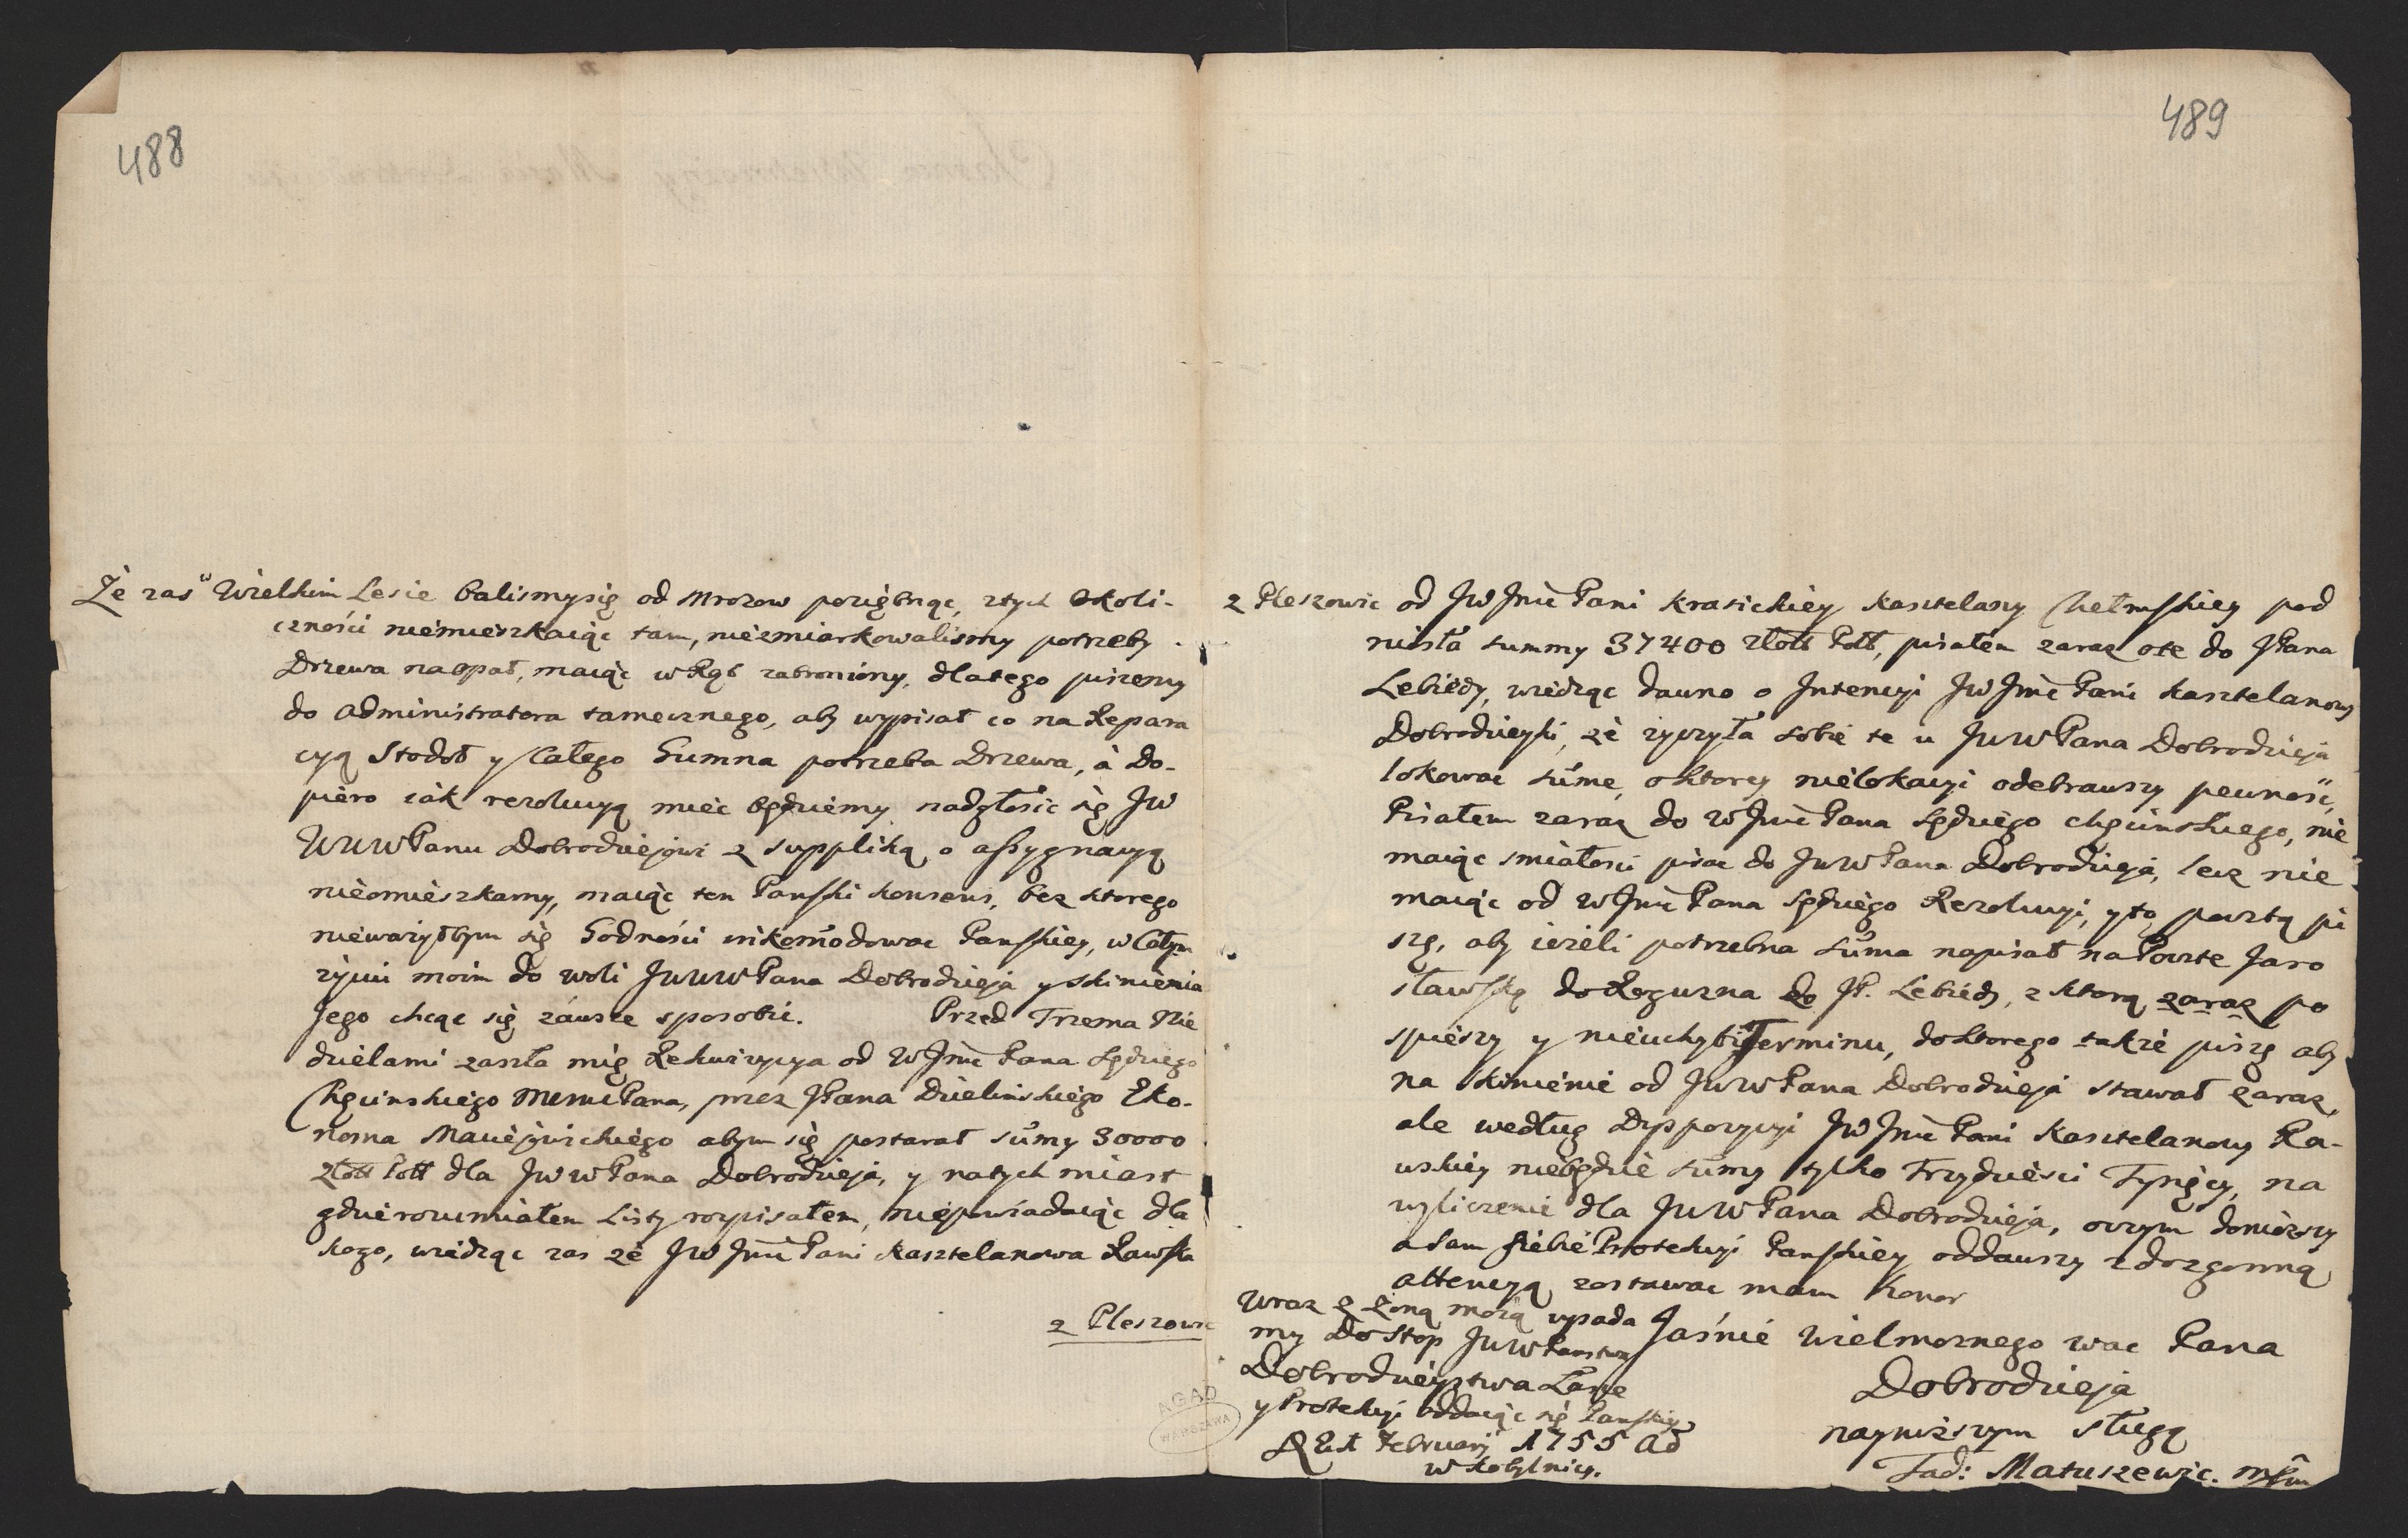 488
Że zaś w Wielkim Lesie balismysię od Mrozow poziębnąc, ztych Okoli-
cznosci niemieszkaiąc tam, niezmiarkowalismy potrzeby
Drzewa naopał, maiąc wRąb zabroniony, dlatego piszemy
do Administratora tamecznego, aby wypisał co na Repara
cyą Stodoł y Całego Gumna potrzeba Drzewa, à Do-
piero iák rezolucyą miec będziemy nadgłosic się JW
WWPanu Dobrodziejowi z suppliką o assygnacyą
nieomieszkamy, maiąc ten Panski konsens, bez ktorego
nieważyłbym się Godnosci inkomodowac Panskiey, w Całym
życiu moim do woli JWWPana Dobrodzieja y skinienia
Jego chcąc się záwsze sposobic. Przed Trzema Nie
dzielami zaszła mię Rekwizycya od WJmć Pana Sędziego
Chęcinskiego Pana, przez JPana Dzielinskiego Eko-
noma Macieiowickiego abym się postarał sumy 30000
złott Poll dla JWWPana Dobrodzieja, y natych miast
gdzierozumiałem Listy rozpisałem, niepowiadaiąc dla
kogo, wiedząc zas że JW Jmć Pani Kasztelanowa Rawska
z Pleszowic
489
z Pleszowic od JW Jmć Pani Krasickiey Kasztelany Chełmskiey pod
niosła summy 37400 złott Poll, pisałem zaraz ote do JPana
Lebiedy, wiedząc dawno o Intencyi JW Jmć Pani Kasztelanowy
Dobrodzieyki, że życzyła sobie te u JWWPana Dobrodzieja
lokowac sumę, oktorey nielokacyi odebrawszy pewność,
Pisałem zaraz do WJmć Pana Sędziego chęcinskiego, nie
maiąc smiałosci pisac do JWWPana Dobrodzieja, lecz nie
maiąc od WJmć Pana Sędziego Rezolucyi, y tą pocztą pi
szę, aby ieżeli potrzebna suma napisał naPocztę Jaro
sławską doRoguzna do JP. Lebiedy, z ktorą zaraz po
spieszy y nieuchybi Terminu, doktorego także piszę aby
na skinienie od JWWPana Dobrodzieja stawał zaraz,
ale według Dyspozycyi JW Jmć Pani Kasztelanowy Ra-
wskiey niebędzie sumy tylko Trzydziesci Tysięcy, na
wyliczenie dla JWWPana Dobrodzieja, oczym doniozszy
a sam siebie Protekcyi Panskiey oddawszy z dozgonną
attencyą zostawac mam honor
Wraz z żoną moią upada
my Do Stop JWWPanstwa
Dobrodzieystwa Łasce
y Protekcyi oddaiąc się Panskiey
Jaśnie Wielmoznego wac Pana
Dobrodzieja
nayniższym sługą
Tad: Matuszewic. mpm
Februarij 1755 Ad
w Kobylnicy.
AGAD
WARSZAWA